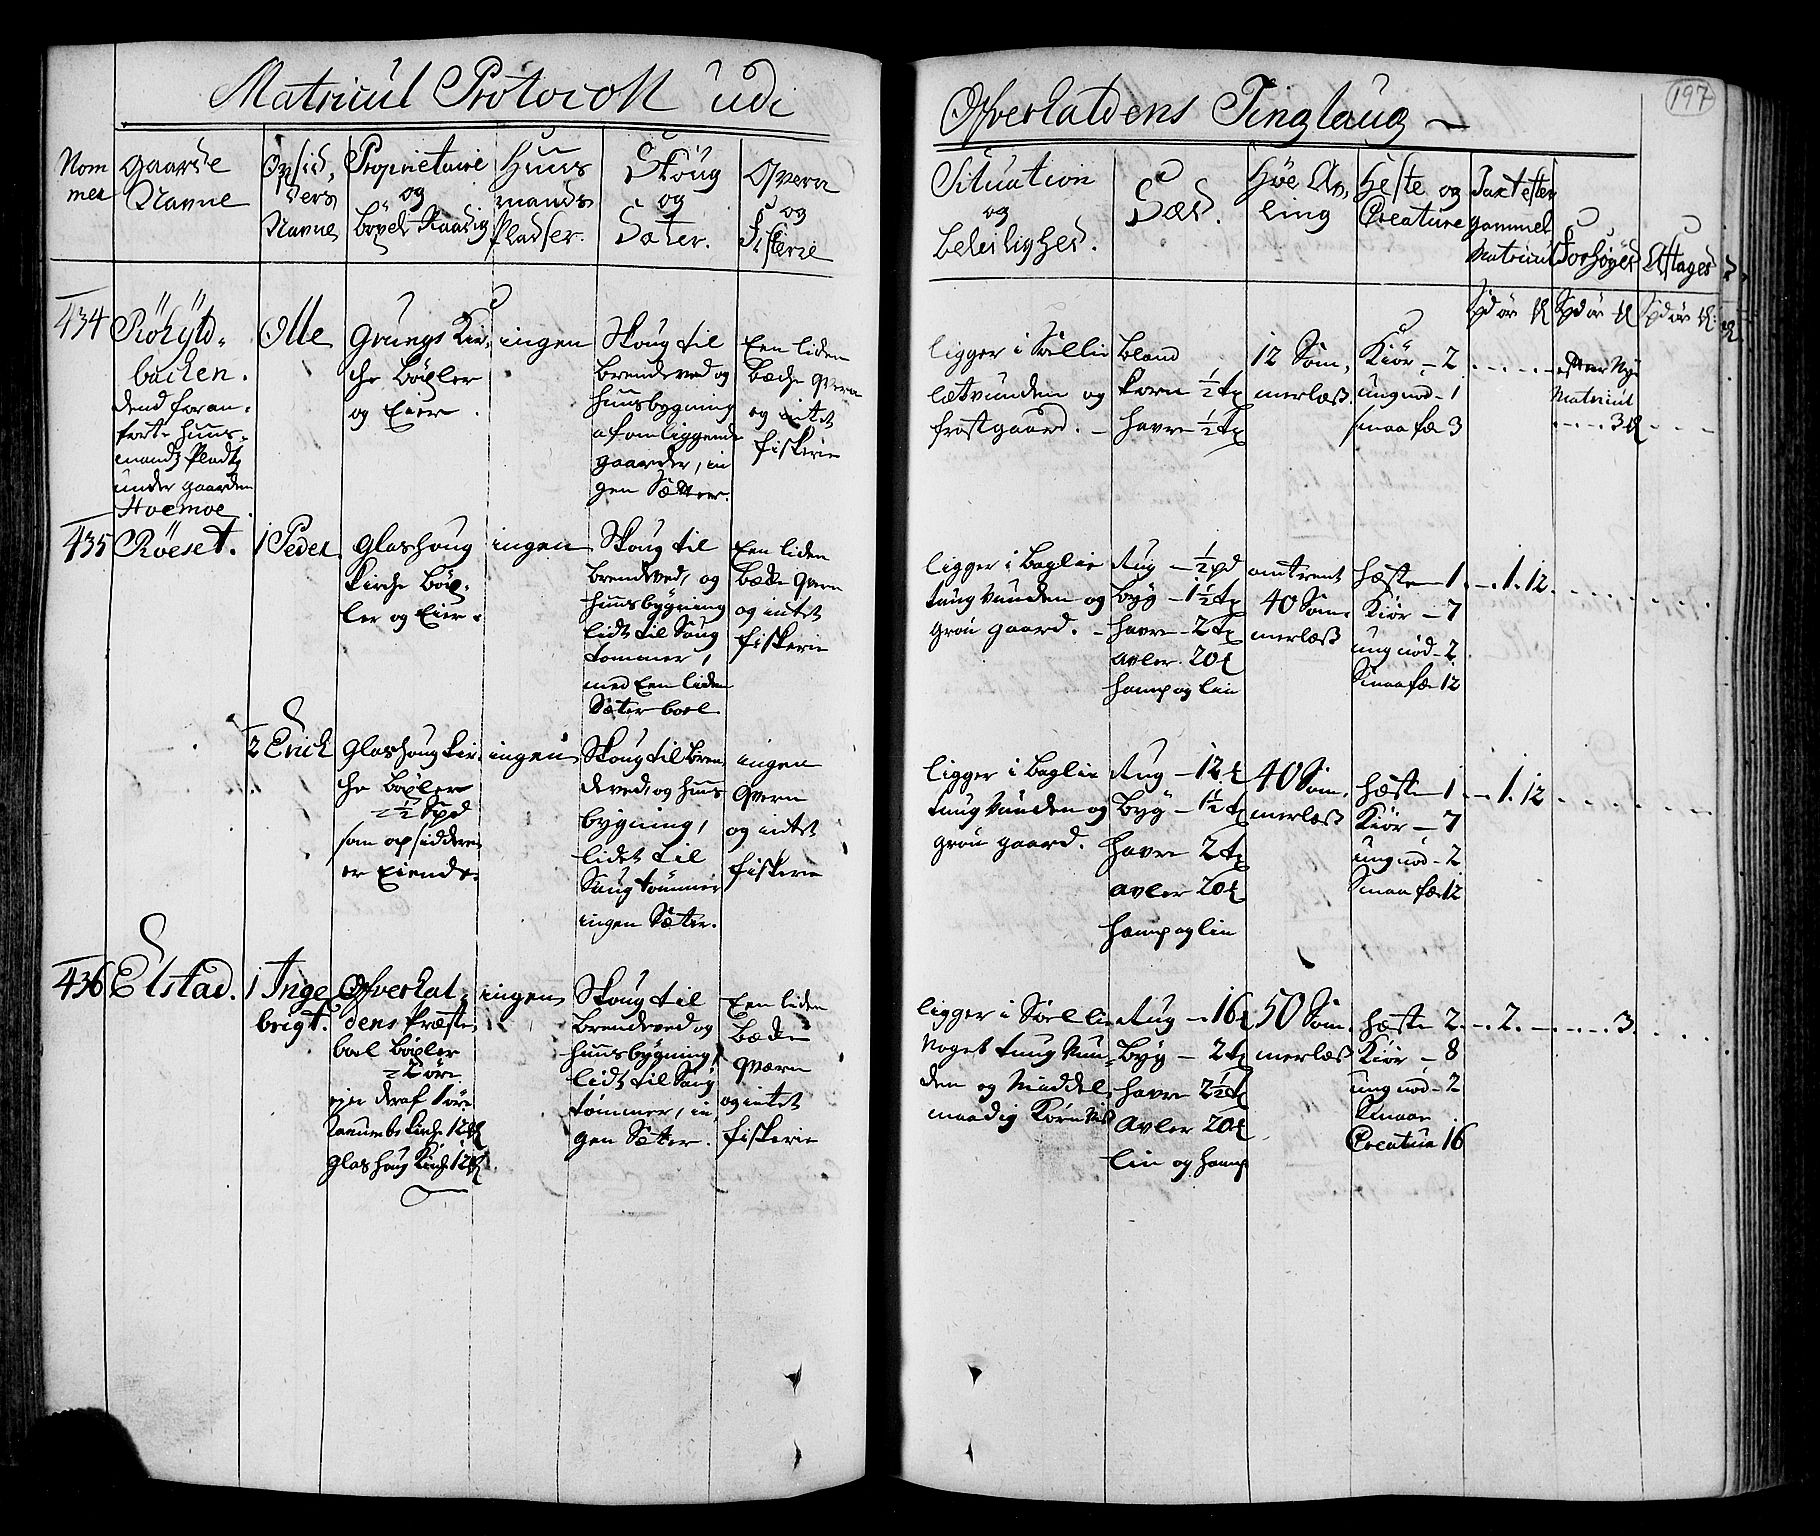 Matricul Protocoll udi
Ofverhaldens Tinglaug
197
Nom
mer
Gaarde
Navne
Opsid,
ders
Navne
Proprietairie
og
böxel Raadig
Huus
mands
Pladser.
Skoug
og
Säter.
Qvern
og
Fiskerie
Situation
og
beleilighed.
Sæd.
Höe Av,
ling
Heste og
Creature
Taxt efter
gammel
Matricul
Forhöyes
Aftages
Spd ör
Spd ör
Spd ör
434
Röhyld,
backen.
dend foran,
förte huus,
mands Pladtz
under gaarden
Hoemoe.
Olle
Grungs Kir,
che böxler
og Eier.
ingen
Skoug til
brendeved og
huusbygning
afomliggende
gaarder, in
gen Sætter.
Een liden
bæche qvern
og intet
fiskerie
ligger i Sollie
lætvunden og
frostgaard.
bland
korn ½ t
havre ½ t
12 Som,
merlæs
Kiör - 2
ungnöd - 1
smaa fæ 3
efter Ny
Matricul
3
435
Röeset.
1 Peder
Glashoug
Kirche böx,
ler og Eier.
ingen
Skoug til
brendeved, og
huusbygning
lidt til Saug
tömmer,
med Een liden
Säter boel
Een liden
bæche qvern
og intet
fiskerie
ligger i baglie
tung vunden og
grön gaard.
Rug - ½ pd
byg - 1½ t
havre - 2 t
avler 20
hamp og lin
omtrent
40 Som,
merlæs
hæste 1
Kiör - 7
ungnöd - 2
Smaa fæ 12
1. 12
2 Erich
Glashoug Kir,
che böxler
2½ Spd
som opsidderen
er Eiende.
ingen
Skoug til bren
deved, og huus
bygning,
lidet til
Saugtömmer
ingen Säter.
ingen
qvern
og intet
fiskerie
ligger i baglie
tung vunden og
grön gaard.
Rug - 12
byg - 1½ t
havre 2 t
avler 20
hamp og lin
40 Som,
merlæs
hæste 1
Kiör - 7
ungnöd - 2
Smaa fæ 12
1. 12
436
Elstad.
1 Inge
brigt.
Ofverhal,
dens Præste
boel böxler
2 öre
eier deraf 1 öre
Ranumbs Kirche 12
Glashoug Kirche 12
ingen
Skoug til
brendeved og
huusbygning,
lidt til Saug
tömmer, in,
gen Sætter.
Een liden
bæche
qværn
og intet
fiskerie
ligger i Soellie
Noget tung vun
den og Middel,
maadig Korn
Rug - 16
byg - 2 t
havre 2½ t
avler 20
lin og hamp
50 Som,
merlæs
hæste 2
Kiör - 8
ungnöd - 2
Smaae
Creature 16
2.
3.